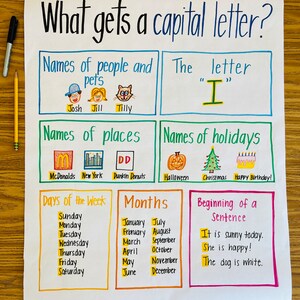 What gets a capital letter?
Names of people and pets
Josh Jill Tilly
The letter
"I"
Names of places
McDonalds New York Dunkin Donuts
Names of holidays
Halloween Christmas Happy Birthday!
Days of the Week
Sunday
Monday
Tuesday
Wednesday
Thursday
Friday
Saturday
Months
January July
February August
March September
April October
May November
June December
Beginning of a
Sentence
It is sunny today.
She is happy!
The dog is white.